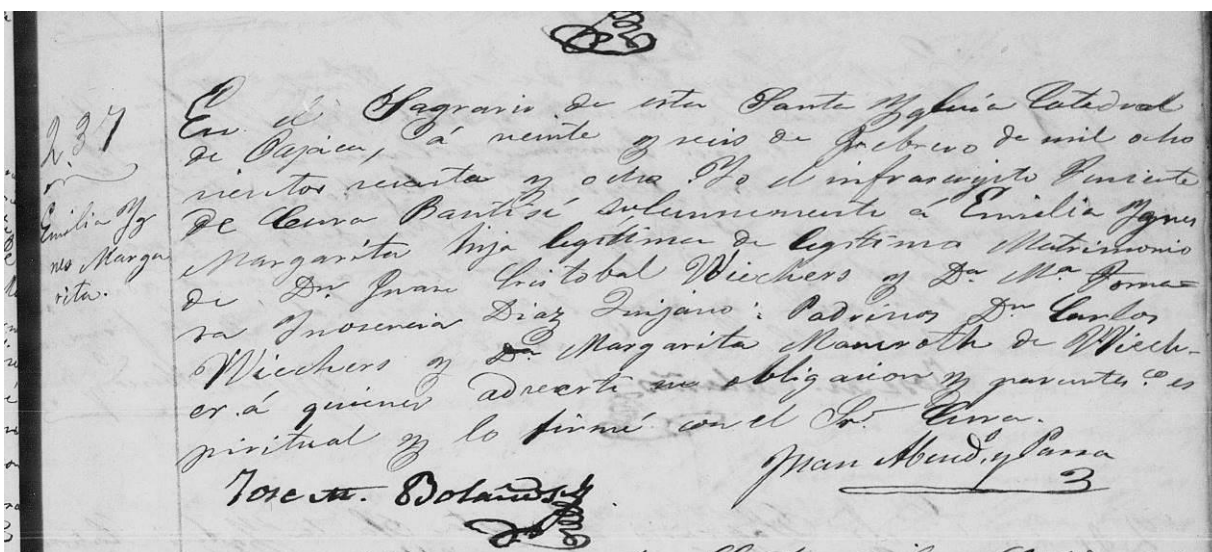 237
Emilia Yg
nes Marga
rita.
En el Sagrario de esta Santa Yglecia Catedral
de Oajaca, á veinte y seis de Febrero de mil ocho
cientos secenta y ocho. Yo el infrascrito Teniente
de Cura Bautisé solennemente á Emilia Ygnes
Margarita hija legitima de legitimo Matrimonio
de Dn. Juan Cristobal Wiechers y Da. Ma. Toma=
ra Ynosencia Diaz Quijano: Padrinos Dn. Carlos
Wiechers y Da. Margarita de Wiech-
er. á quienes adverti su obligacion y parentco. es
piritual y lo firmé con el Sr. Cura.
Juan y Parra
Jose M. Bolaños